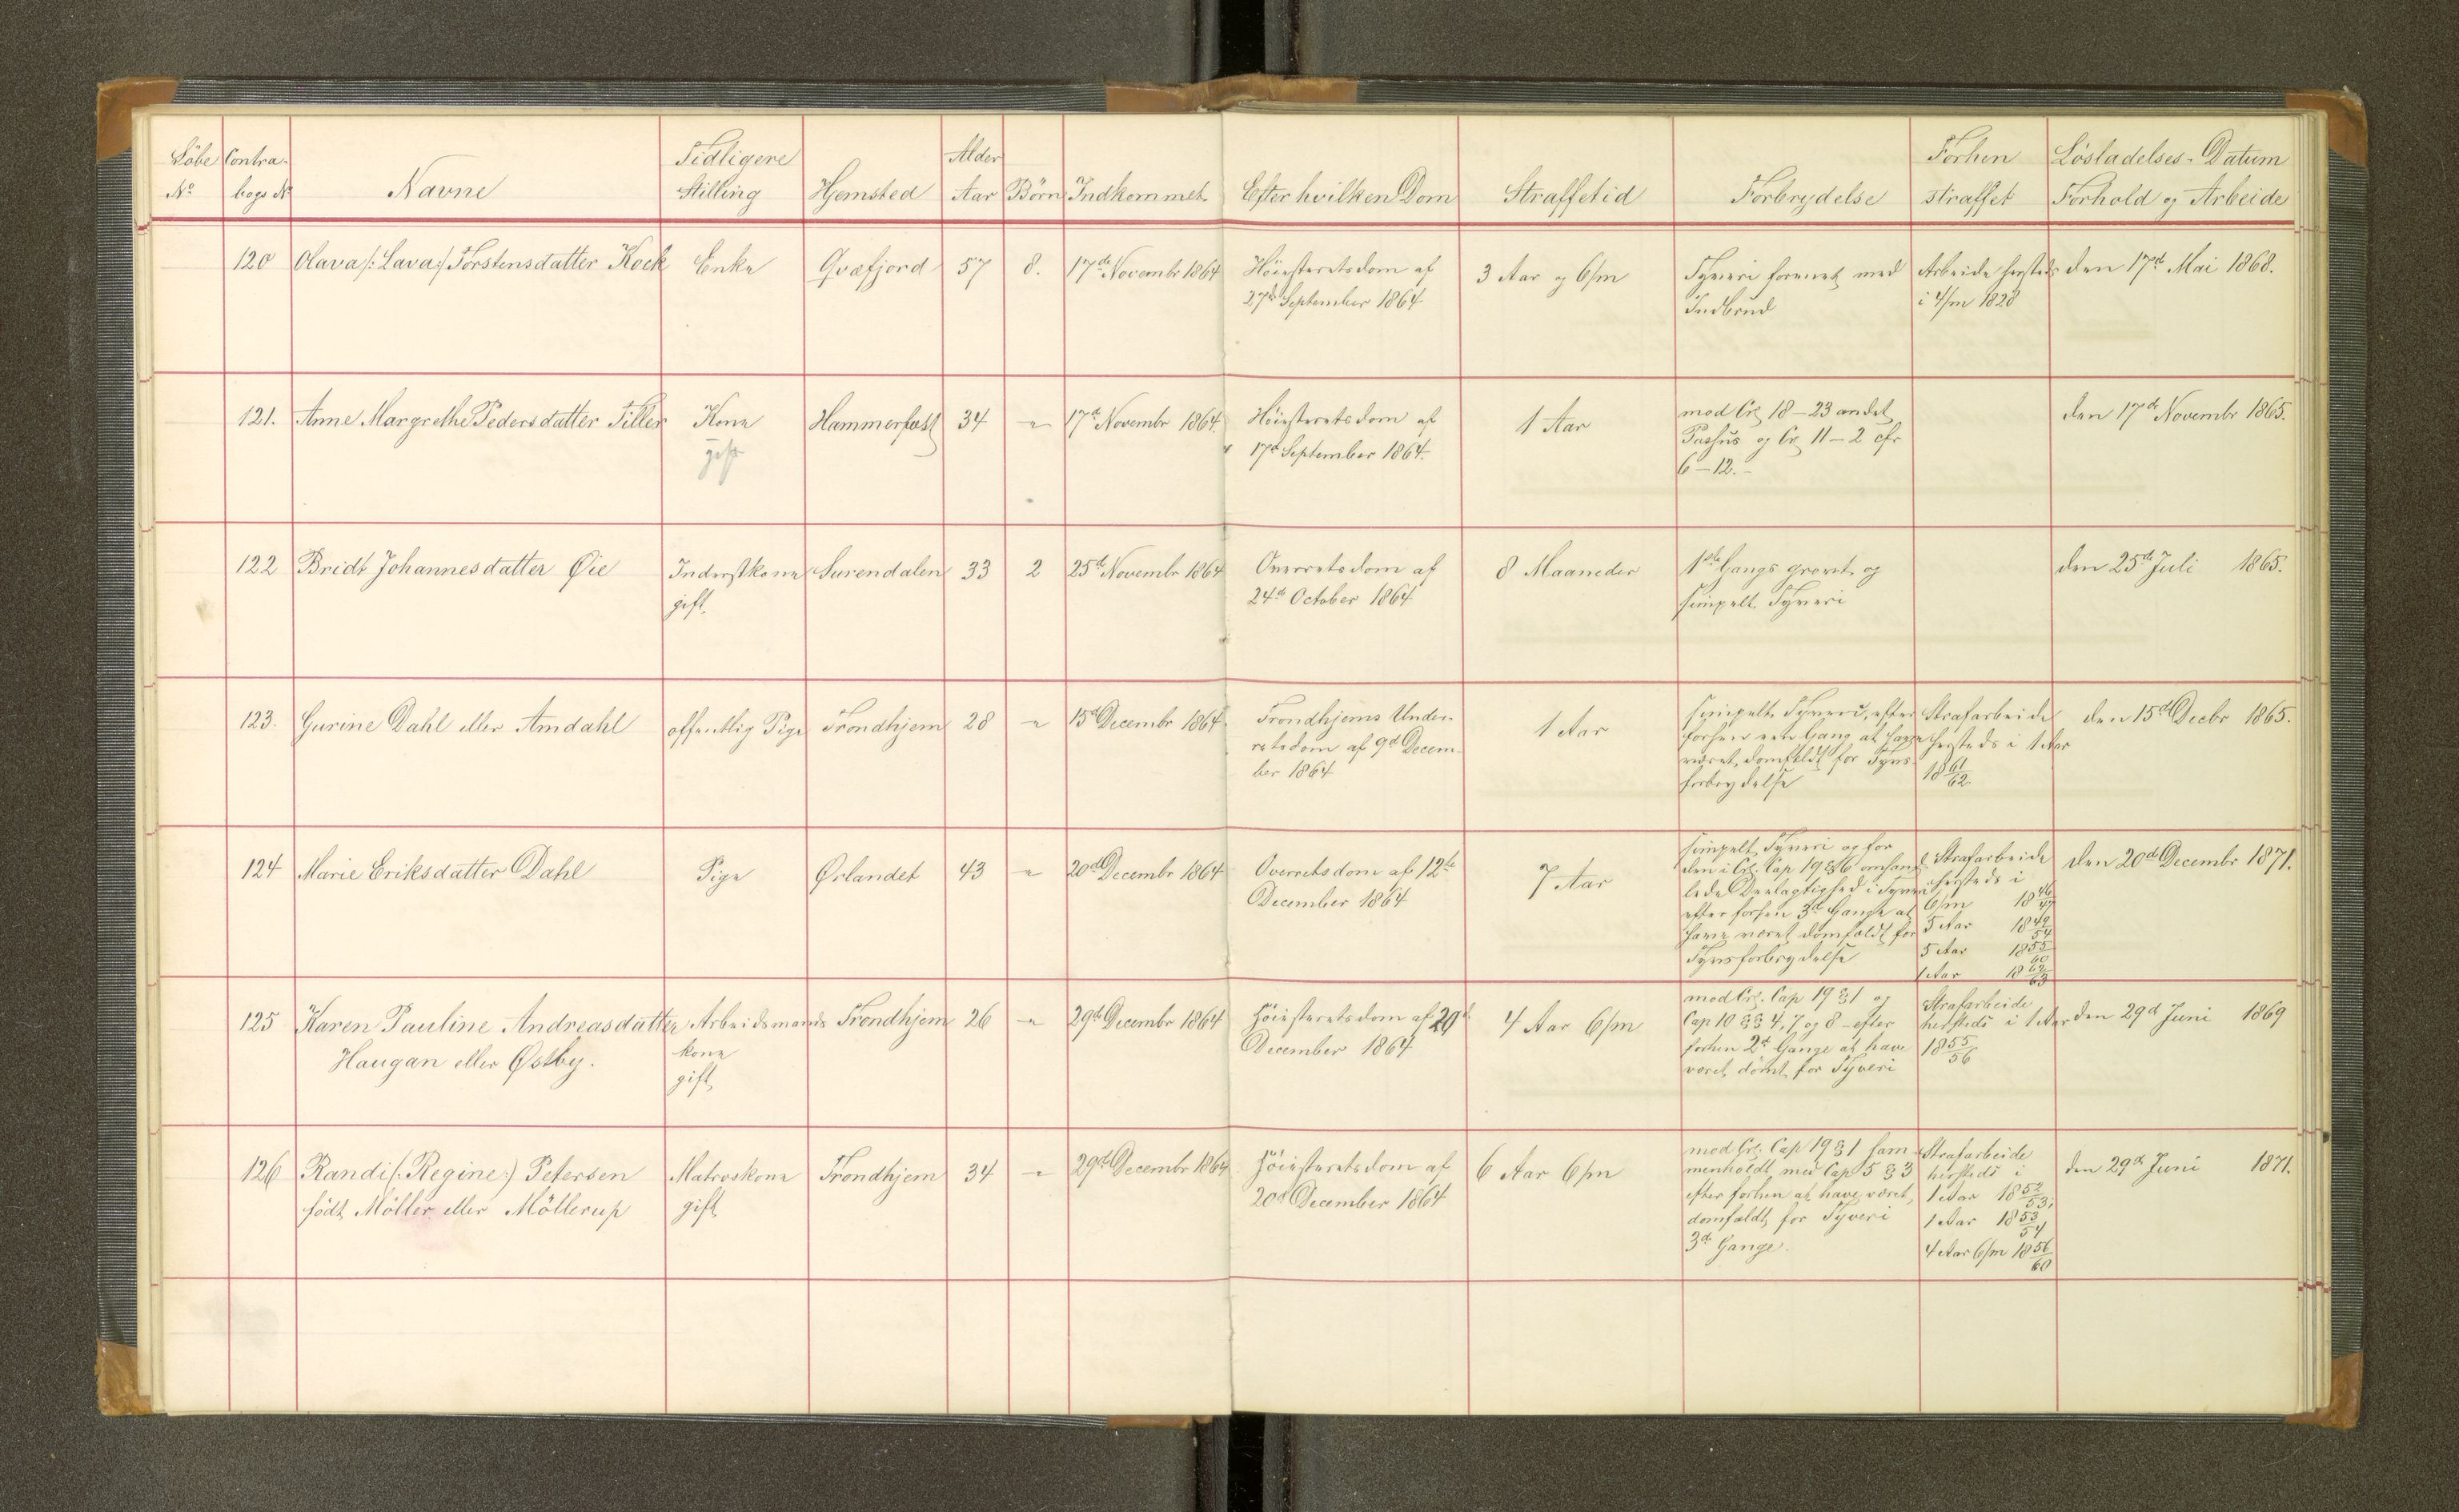 Löbe Contra- Tidligere Alder Forhen Løsladelses-Datum
No bogs No Navne Stilling Hjemsted Aar Börn Indkommet Efter hvilken Dom Straffetid Forbrydelse straffet Forhold og Arbeide
120 Olava /: Lava :/ Torstensdatter Kock Enke Qvæfjord 57 8. 17de Novembr 1864 Höiesteretsdom af 3 Aar og 6/m Tyveri forenet med Arbeide hersteds den 17de Mai 1868.
27de September 1864 Indbrud i 4/m 1828
121. Anne Margrethe Pedersdatter Tiller Kone Hammerfest 34 " 17de Novembr 1864. Höiesteretsdom af 1 Aar mod Crl 18-23 andet den 17de Novembr 1865.
gift 17de September 1864. Passus og Cr 11-2 cfr
6-12.-
122 Bridt Johannesdatter Øie Inderstkone Surendalen 33 2 25de Novembr 1864 Overretsdom af 8 Maaneder 1ste Gangs grovt og den 25de Juli 1865.
gift. 24de October 1864 simpelt Tyveri
123. Gurine Dahl eller Amdahl offentlig Pige Trondhjem 28 " 15de Decembr 1864. Trondhjems Under- 1 Aar simpelt Tyveri, efter Strafarbeide den 15de Decbr 1865.
retsdom af 9de Decem- forhen een Gang at have hersteds i 1 Aar
ber 1864 været domfældt for Tyvs- 18 61/62
forbrydelse
124 Marie Eriksdatter Dahl Pige Ørlandet 43 " 20de Decembr 1864 Overretsdom af 12te 7 Aar simpelt Tyveri og for Strafarbeide den 20de Decembr 1871.
December 1864 den i Crl. Cap 19 § 6 omhand- hersteds i
lede Deelagtighed i Tyveri 6/m 18 46/47
efter forhen 3de Gange at 5 Aar 18 49/54
have været domfældt for 5 Aar 18 55/60
Tyvsforbrydelse 1 Aar 18 62/63
125 Karen Pauline Andreasdatter Arbeidsmands Trondhjem 26 " 29de Decembr 1864 Höiesteretsdom af 29de 4 Aar 6/m mod Crl. Cap 19 § 1 og Strafarbeide den 29de Juni 1869
Haugan eller Østby. kone December 1864 Cap 10 §§ 4, 7 og 8 - efter hersteds i 1 Aar
gift forhen 2de Gange at have 18 55/56
været dömt for Tyveri
126 Randi /: Regine :/ Petersen Matroskone Trondhjem 34 " 29de Decembr 1864 Höiesteretsdom af 6 Aar 6/m mod Crl. Cap 19 § 1 sam- Strafarbeide den 29de Juni 1871.
födt Möller eller Möllerup gift 20de December 1864 menholdt med Cap 5 § 3 hersteds i
efter forhen at have været 1 Aar 18 52/53;
domfældt for Tyveri 1 Aar 18 53/54
3de Gange. 4 Aar 6/m 18 56/60